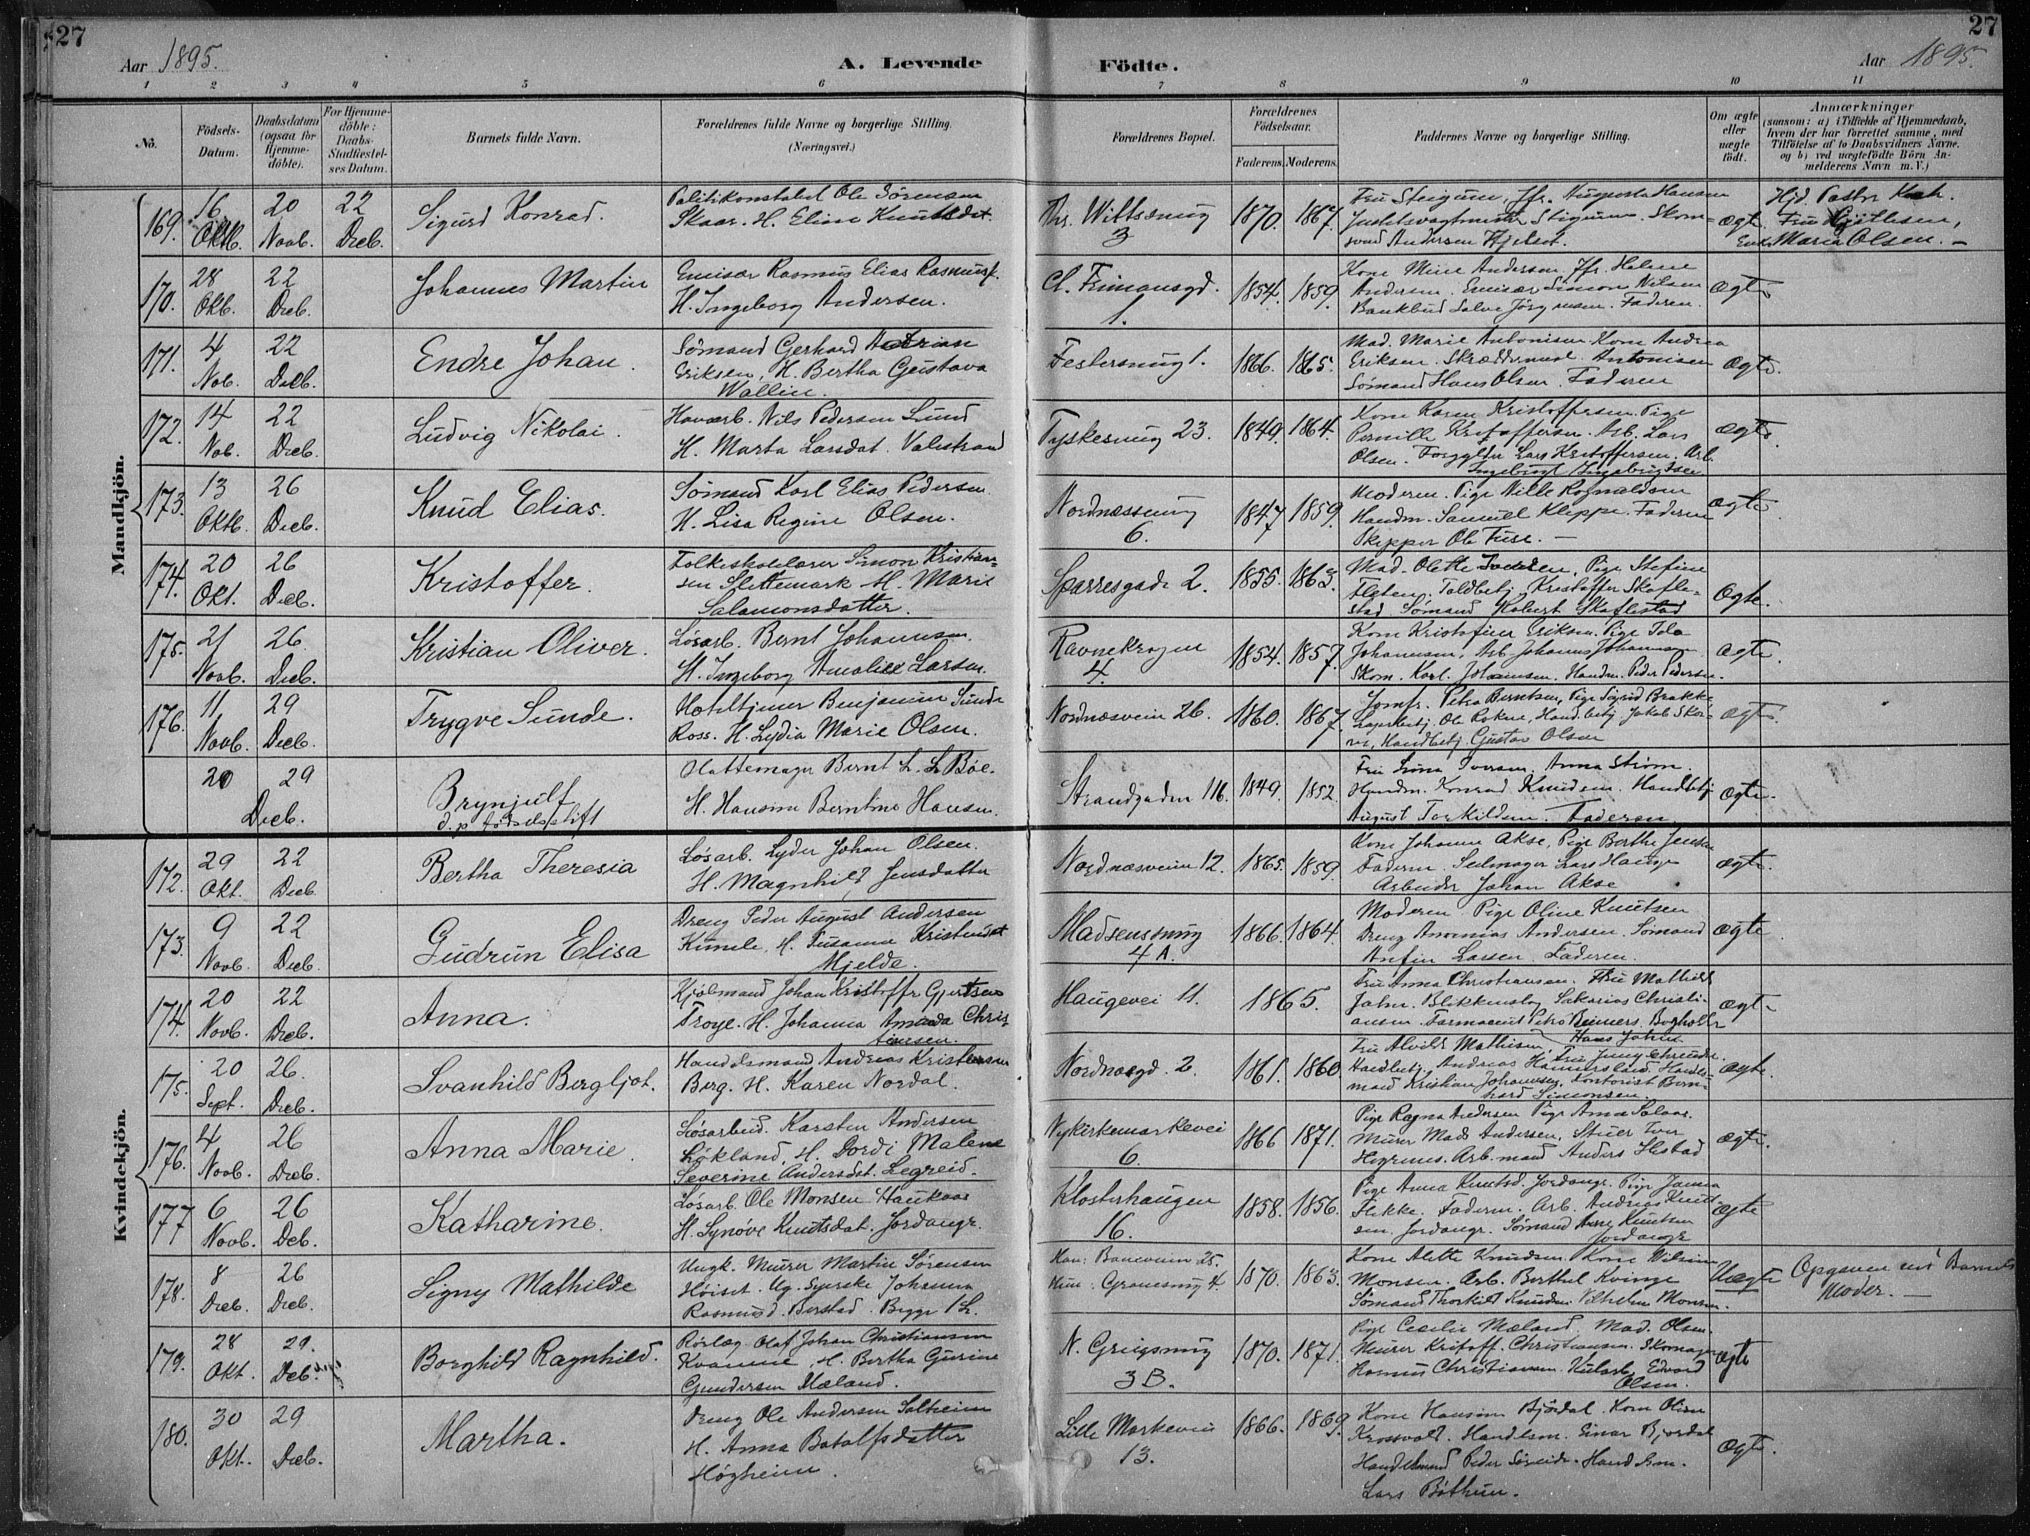 27
27
Aar 1895.
A. Levende
Födte.
Aar 1895.
1 2 3 4 5 6 7 8 9 10 11
No.
Födsels-Datum.
Daabsdatum (ogsaa for Hjemmedöbte).
For Hjemmedöbte: Daabs-Stadfæstelses Datum.
Barnets fulde Navn.
Forældrenes fulde Navne og borgerlige Stilling.
(Næringsvei.)
Forældrenes Bopæl.
Forældrenes Födselsaar.
Faderens.
Moderens.
Faddernes Navne og borgerlige Stilling.
Om ægte eller uægte födt.
Anmærkninger
(saasom: a) i Tilfælde af Hjemmedaab, hvem der har forrettet samme, med Tilföielse af to Daabsvidners Navne, og b) ved uægtefödte Börn Anmelderens Navn m. V.)
Mandkjön.
169. 16 Oktb. 20 Novb. 22 Decb.
Sigurd Konrad.
Politikonstabel Ole Sörensen
Skaar. H. Eline Knutsdat.
Thr. Wittssmug
3
1870. 1867.
ægte
Hjd. Pastor
Maria Olsen.
170. 28 Oktb. 22 Decb.
Johannes Martin
Emisær Rasmus Elias Rasmuss.
H. Ingeborg Andersen.
Cl. Fimansgd.
1.
1854. 1859.
Kone Andersen Jfr. Helene
Andersen. Emisær Simon Nilsen
Bankbud Salve Jörgensen. Faderen.
ægte
171. 4 Nob. 22 Decb.
Endre Johan.
Sömand Gerhard Adrian
Eriksen, H. Bertha Gustava
Wallin.
Festersmug 1.
1866. 1865.
Mad. Marie Antonisen Kone Andrea
Eriksen. Antonisen
Sömand Hans Olsen. Faderen
ægte.
172. 14 Nob. 22 Decb.
Ludvig Nikolai.
Havarb. Nils Pedersen Lund
H. Marta Larsdat. Valestrand
Tyskesmug 23.
1849. 1864.
Kone Karen Kristoffersen. Pige
Pernille Kristoffersen. Arb. Lars
Olsen. Forgylder Lars Kristoffersen. Arb.
Ingebrigt Ingebrigtsen
ægte.
173. 13 Oktb. 26 Decb.
Knud Elias.
Sömand Karl Elias Pedersen
H. Lisa Regine Olsen.
Nordnæssmug
6.
1847 1859.
Moderen. Pige Nille Rognaldsen
Handm. Samuel Kleppe. Faderen
Skipper Ole Fuse.
ægte.
174. 20 Okt. 26 Decb.
Kristoffer.
Folkeskolelærer Simon Kristian-
sen Slettemark H. Marie
Salamonsdatter.
Sparresgade 2.
1855. 1863.
Mad. Olette Pige Stefine
Fleten. Toldbetj. Kristoffer Skafle-
stad Sömand Robert Skaflestad
Ægte.
175. 21 Novb. 26 Decb.
Kristian Oliver.
Lösarb. Bernt Johannesen.
H. Ingeborg Amalie Larsen.
Ravnekrogen
4.
1854. 1857.
Kone Kristofine Eriksen. Pige Ida
Johannesen, Arb Johannes Johannes
Skom. Karl Johannsen. Handm. Peder Pedersen.
ægte.
176. 11 Novb. 29 Decb.
Trygve Sunde.
Hoteltjener Benjamin Sunde
Ross. H. Lydia Marie Olsen.
Nordnæsveien 26.
1860. 1867.
Jomfr. Petra Berntsen, Pige Sigrid Brakke,
Lagerbetj. Ole Handbetj Jakob
Handbetj Gustav Olsen
ægte.
20 29 Decb.
Brynjulf
d. p. fødselsstift
Hattemager Bernt L. L. Böe.
H. Hansine Berntine Hansen.
Strandgaden 116.
1849. 1852.
Fru Iversen. Anna Ström.
Handm. Konrad Knudsen. Handbetj
August Torkildsen. Faderen
ægte.
Kvindekjön.
172. 29 Okt. 22 Decb.
Bertha Theresia
Lösarb. Lyder Johan Olsen.
H. Magnhild Jensdatter
Nordnæsveien 12.
1865. 1859.
Kone Johanne Akse, Pige Berthe Jensen
Faderen. Seilmager Lars Hauge
Arbeider Johan Akse
ægte.
173. 9 Novb. 22 Decb.
Gudrun Elisa
Dreng Peder August Andersen
Kimle, H. Susanne Kristensdat
Mjelde.
Madsenssmug
4 A.
1866. 1864.
Moderen Pige Oline Knutsen
Dreng Ananias Andersen. Sömand
Anfin Larsen. Faderen.
ægte
174. 20 Novb. 22 Decb.
Anna.
Kjölmand Johan Kristoffr Gjertsen
Troye. H. Johanna Amanda Chris
tiansen.
Haugevei 11.
1865.
Fru Anna Christiansen. Fru Mathilde
Jahn. Blikkenslag. Sakarias Christi-
ansen. Farmaceut Petro Reimers. Bogholder
Hans Jahn
ægte
175. 20 Sept. 26. Decb.
Svanhild Bergljot.
Handelsmand Andreas Kristensen
Berg. H. Karen Nordal.
Nordnæsgd. 2.
1861. 1860
Fru Alvilde Mathisen
Handbetj. Andreas Hammerslund. Handels-
mand Kristian Johannesen, Kontorist Bern-
hard Simonsen.
ægte.
176. 4 Novb. 26 Decb.
Anna Marie.
Lösarbeid. Karsten Andersen
Lökland, H. Dordi Malene
Severine Andersdat. Legreid.
Nykirkemarkevei
6.
1866 1871.
Pige Ragna Andersen Pige Anna
Murer Mads Andersen, Stuer Iver
Hegrenes. Arb.mand Anders Hestad
ægte.
177 6 Novb. 26 Deb.
Katharine.
Lösarb. Ole Monsen Haukaas
H. Synöve Knutsdat. Jordanger.
Klosterhaugen
16.
1858. 1856.
Pige Anna Knutsd. Jordangr. Pige Janna
Flekke. Faderen. Arb. Andreas Knut
sen Jordangr. Sömand Knutsen
Jordangr
ægte
178. 8 Decb. 26 Decb.
Signy Mathilde
Ungk. Murer Martin Sörensen
Höiset. Ug. Syerske Johanna
Rasmusd. Berstad. Begge 1ste.
Han: Baneveien 25.
Hun: Gronesmug 4.
1870. 1863.
Kone Alette Knudsen. Kone
Monsen. Arb. Berthel Kvinge
Sömand Thorkild Knudsen Vilhelm Monsen.
Uægte
Opgiven ved Barnets
Moder.
179. 28 Okt. 29. Deb.
Borghild Ragnhild.
Rörlæg. Olaf Johan Christiansen
Kvamme, H. Bertha Gurine
Gundersen Mæland.
N. Griegsmug
3 B.
1870. 1871.
Pige Cecilie Mæland Mad. Olsen.
Murer Kristoff. Christiansen. Skomager
Rasmus Christiansen. Edvard
Olsen.
ægte
180. 30 Okt. 29 Decb.
Martha.
Dreng Ole Andersen Solheim
H. Anna Botolfsdatter
Högheim.
Lille Markevei
13.
1866. 1869.
Kone Hansine Bjordal. Kone Oline
Krossvold. Handlsm. Einar Bjordal
Handelsmand Peder Söreide. Handlsm.
Lars Böthun.
ægte.